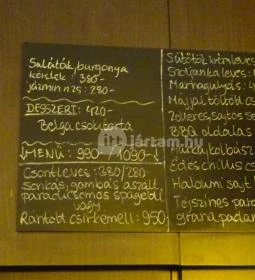 Saláták, burgonya
köretek : 380,-
jázmin rizs : 280,-
DESSZERT: 420,-
Belga csokitorta
MENÜ: 990,- / 1090,-
Csontleves : 380/280
Sonkás, gombás, aszalt
paradicsomos spagetti
vagy
Rántott csirkemell: 950,-
Sütőtök krémleves
Szoljanka leves :
Marhagulyás :
Májjal töltött cs
Zelleres, sajtos se
BBQ oldalas
kolbász
Édes chilis cs
Halloumi sajt
Tejszínes para
grana padan
jártam.hu